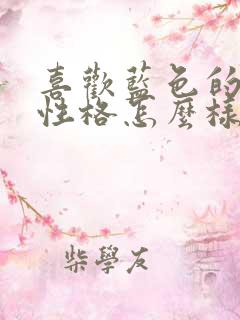 喜歡藍色的
性格怎麼樣
柴學友